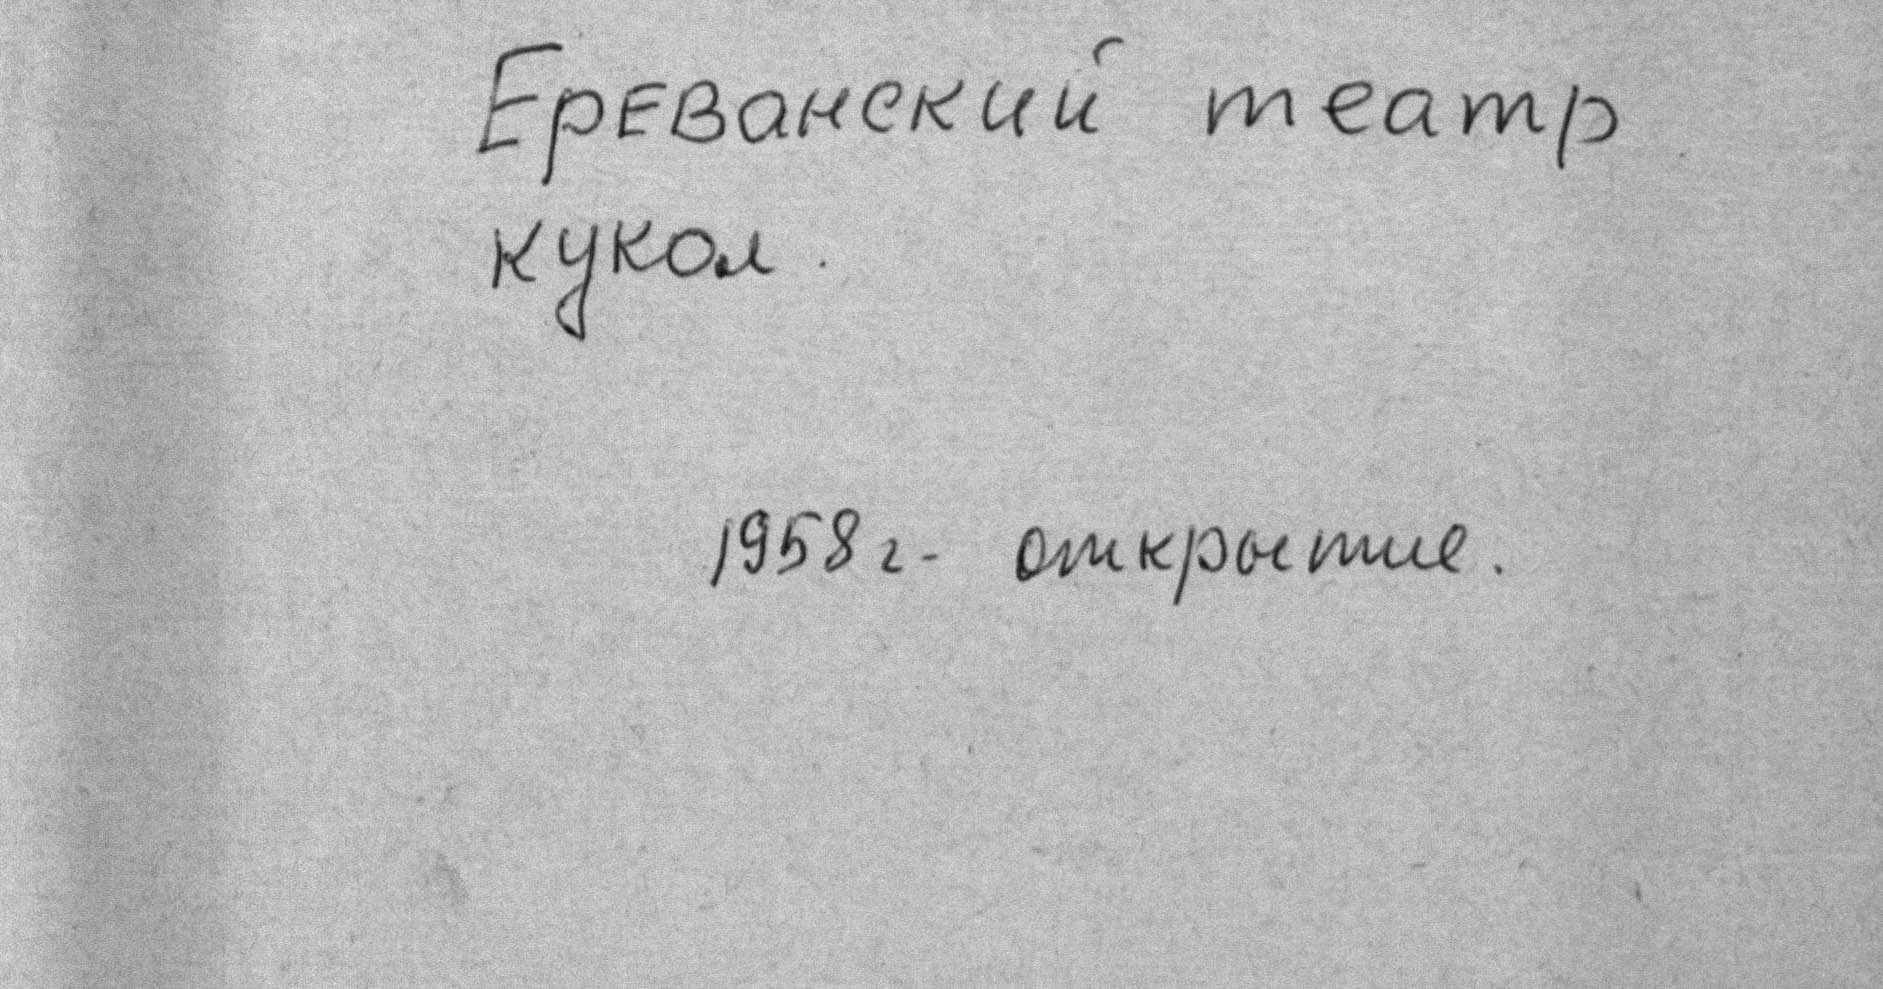 Ереванский театр
кукол.
1958 г- открытие.